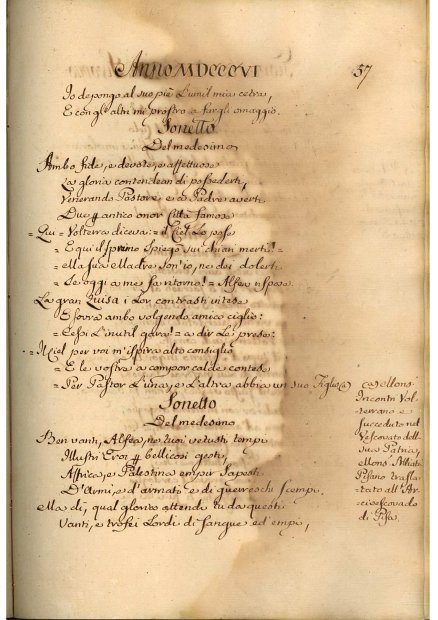 Anno MDCCCVI
57
Io depongo al suo piè l'umil mia cetra,
E con gl'altri mi prostro a fargli omaggio.
Sonetto
Del medesimo
Ambo fide, e devote, e affettuose
La gloria contendean di possederti,
Venerando Pastore e a Padre averti
Due antico onor Città famose
= Qui = Volterra diceva: = il Ciel lo pose
= E qui il primo spiegò sui chiari merti! =
= Ella sua Madre son'io, ne dei dolerti
= Se oggi a me fa ritorno! = Alfea rispose
La gran Quisa i lor contrasti intese
E sovra ambo volgendo amico ciglio:
= Cessi l'inutil gara! = a dir le prese:
= Il Ciel per voi m'ispira alto consiglio
= E le vostre a compor calde contese
= Per Pastor l'una, e l'altra abbia un suo Figlio(a)
Sonetto
Del medesimo
Ben vanti, Alfea, ne' tuoi vetusti tempi
Illustri Eroi bellicosi gesti,
Affrica, e Palestina empir sapesti
D'Armi, e d'armati e di guerreschi scempi.
Ma di, qual gloria attende tu da questi
Vanti, e trofei lordi di sangue ed'empi,
(a) Mons.
Incontri Vol-
terrano e
succeduto nel
Vescovato dell
sua Patria,
e Mons. Alliati
Pisano trasla-
tato all'Ar-
civescovado
di Pisa.